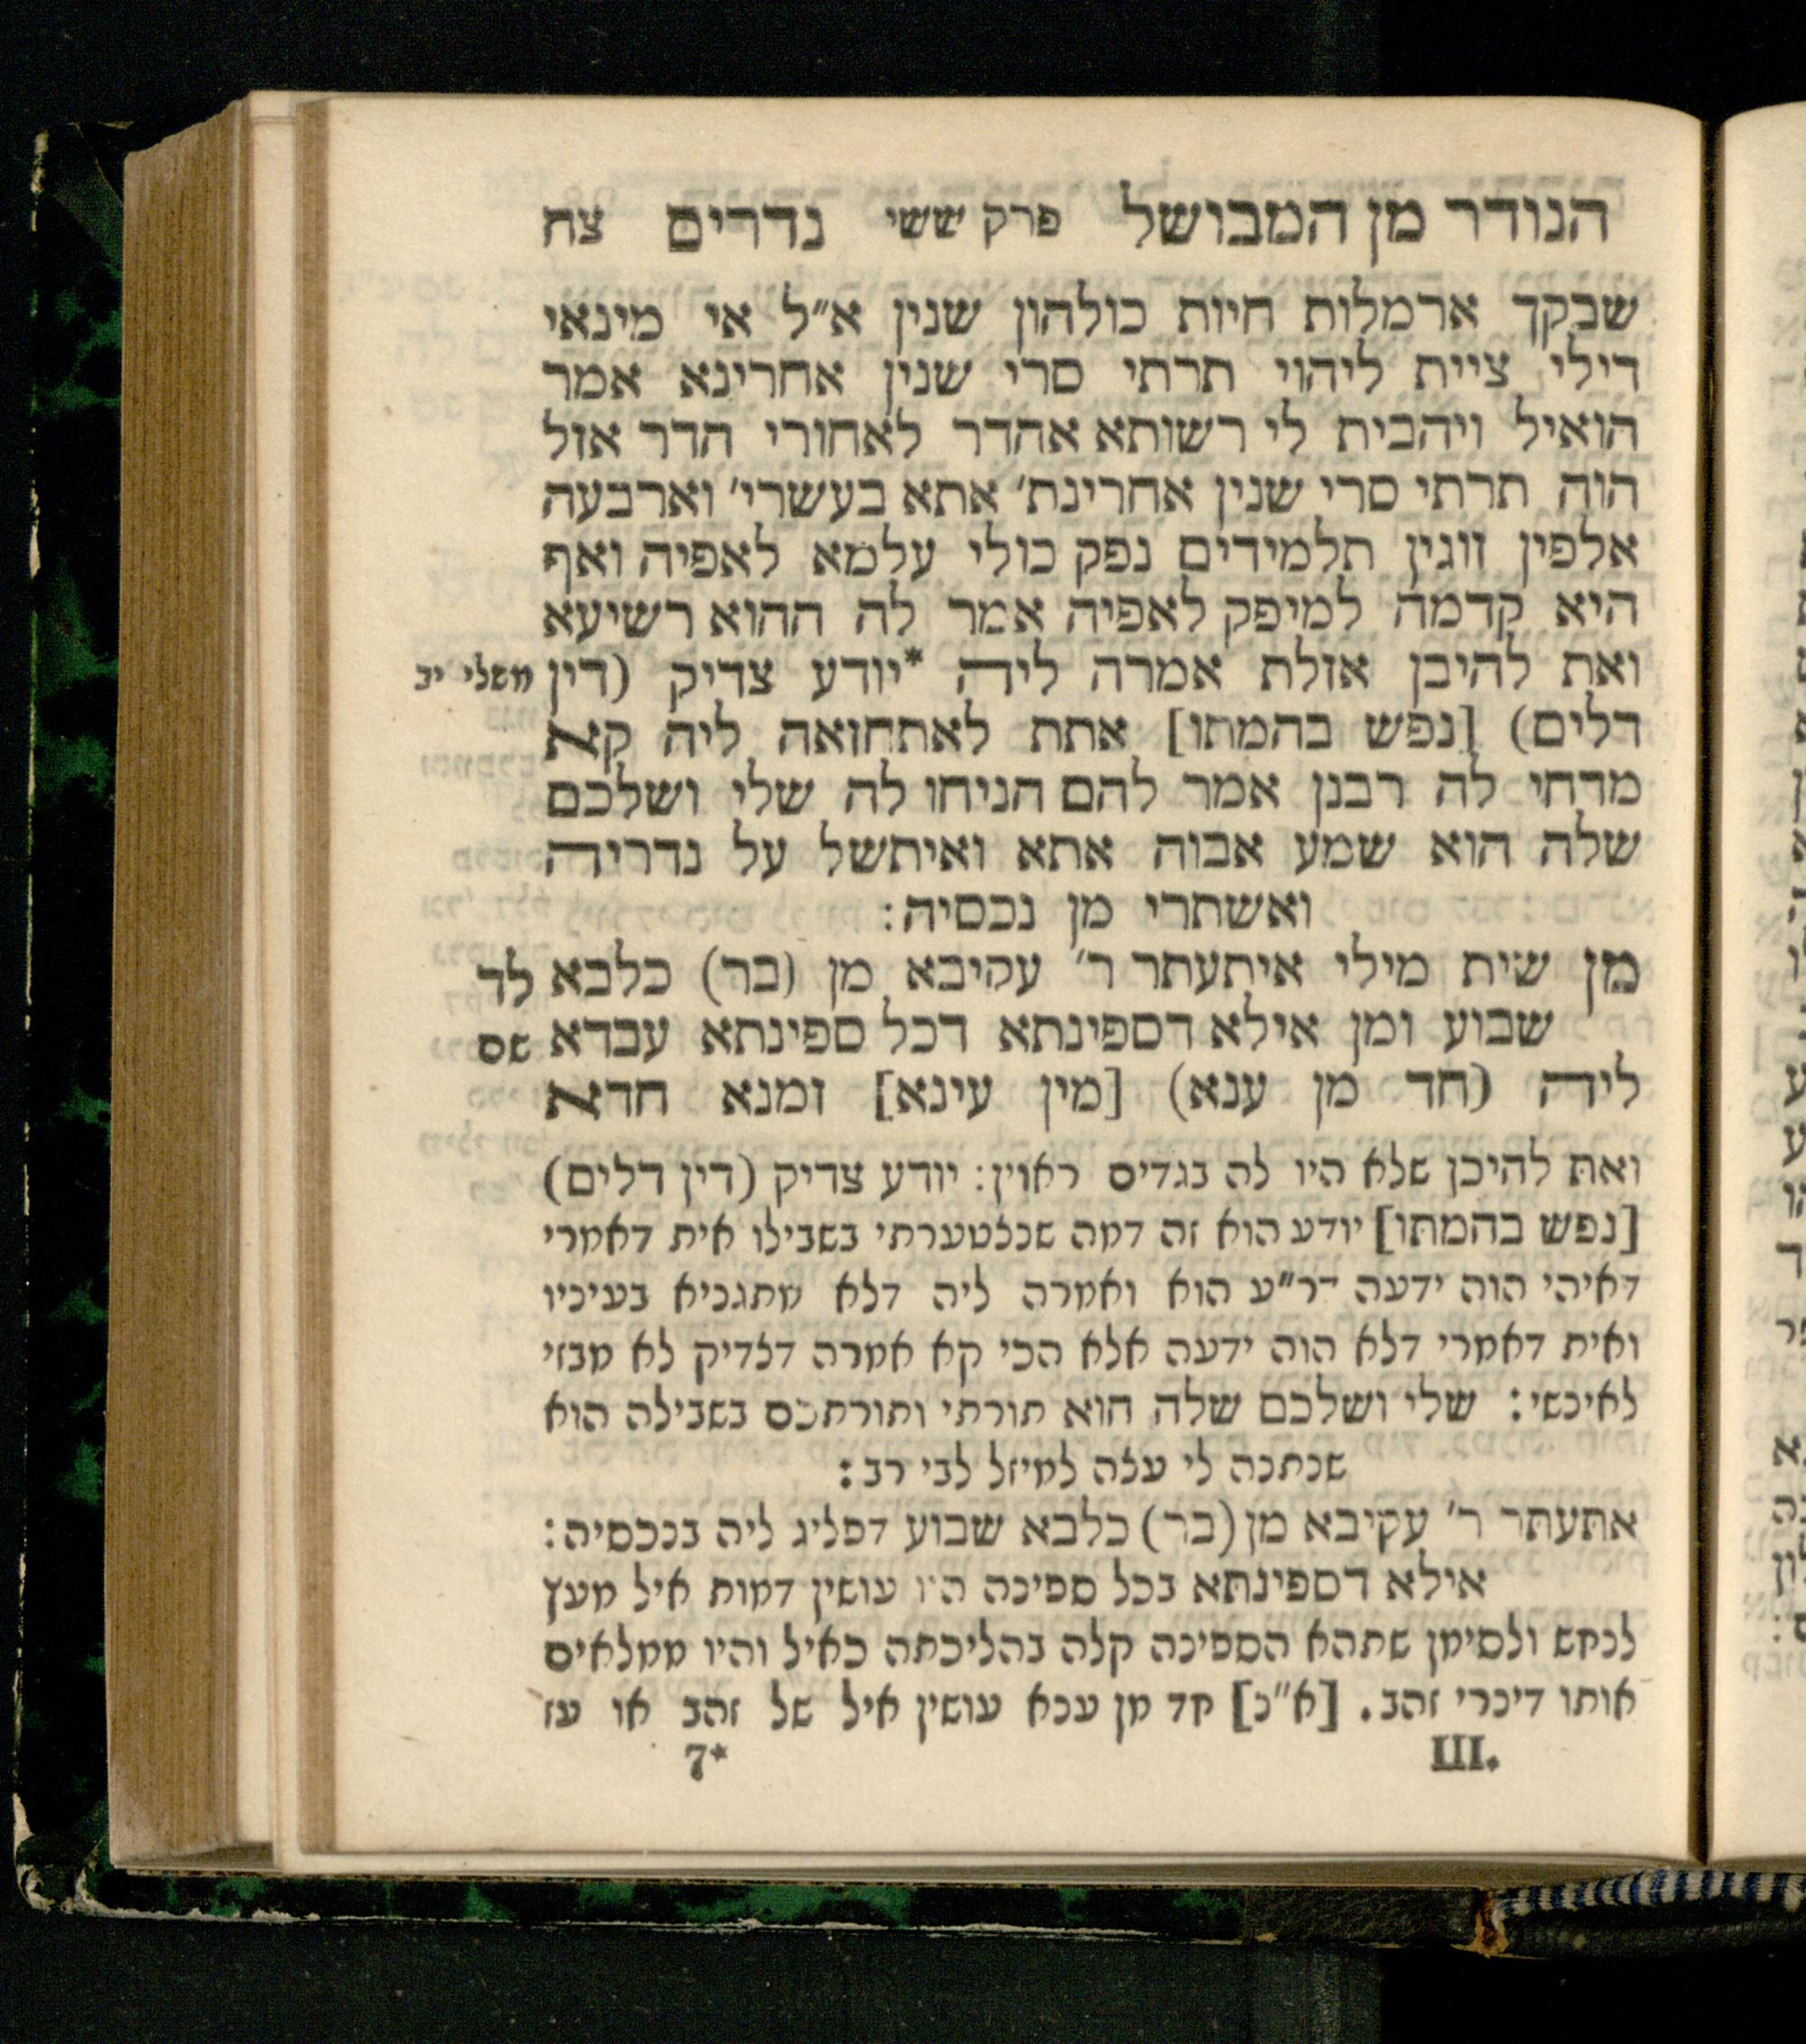 הנודר מן המבושל פרק ששי נדרים צח
שבקך ארמלות חיות כולהון שנין א״ל אי מינאי
דילי ציית ליהוי תרתי סרי שנין אחרינא אמר
הואיל ויהבית לי רשותא אהדר לאחורי הדר אזל
הוה תרתי סרי שנין אחרינת׳ אתא בעשרי׳ וארבעה
אלפין זוגין תלמידים נפק כולי עלמא לאפיה ואף
היא קדמה למיפק לאפיה אמר לה ההוא רשיעא
ואת להיכן אזלת אמרה ליה *יודע צדיק (דין משלי יב
דלים) [נפש בהמתו] אתת לאתחזאה ליה קא
מדחי לה רבנן אמר להם הניחו לה שלי ושלכם
שלה הוא שמע אבוה אתא ואיתשל על נדריה
ואשתרי מן נכסיה:
מן שית מילי איתעתר ר׳ עקיבא מן (בר) כלבא לד
שבוע ומן אילא דספינתא דכל ספינתא עבדא שם
ליה (חד מן ענא) [מין עינא] זמנא חדא
ואת להיכן שלא היו לה בגדים ראוין: יודע צדיק (דין דלים)
[נפש בהמתו] יודע הוא זה דמה שנצטערתי בשבילו אית דאמרי
דאיהי הוה ידעה דר״ע הוא ואמרה ליה דלא מתגניא בעיניו
ואית דאמרי דלא הוה ידעה אלא הכי קא אמרה דצדיק לא מבזי
לאינשי: שלי ושלכם שלה הוא תורתי ותורתכם בשבילה הוא
שנתנה לי עצה למיזל לבי רב:
אתעתר ר׳ עקיבא מן (בר) כלבא שבוע דפליג ליה בנכסיה:
אילא דספינתא בכל ספינה היו עושין דמות איל מעץ
לנחש ולסימן שתהא הספינה קלה בהליכתה כאיל והיו ממלאים
אותו דינרי זהב. [א״נ] חד מן ענא עושין איל של זהב או עז
III. 7*